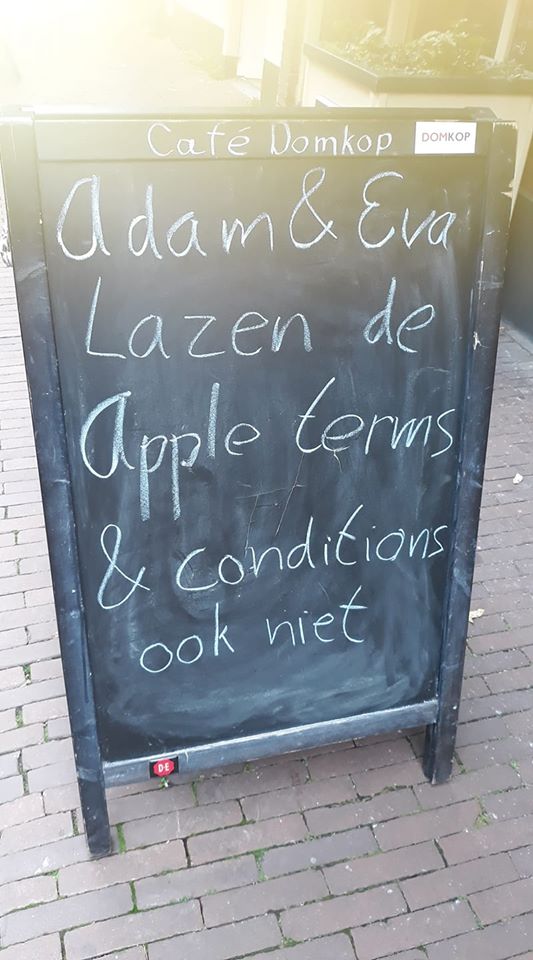 Café Domkop DOMKOP
Adam & Eva
Lazen de
Apple terms
& conditions
ook niet
D·E